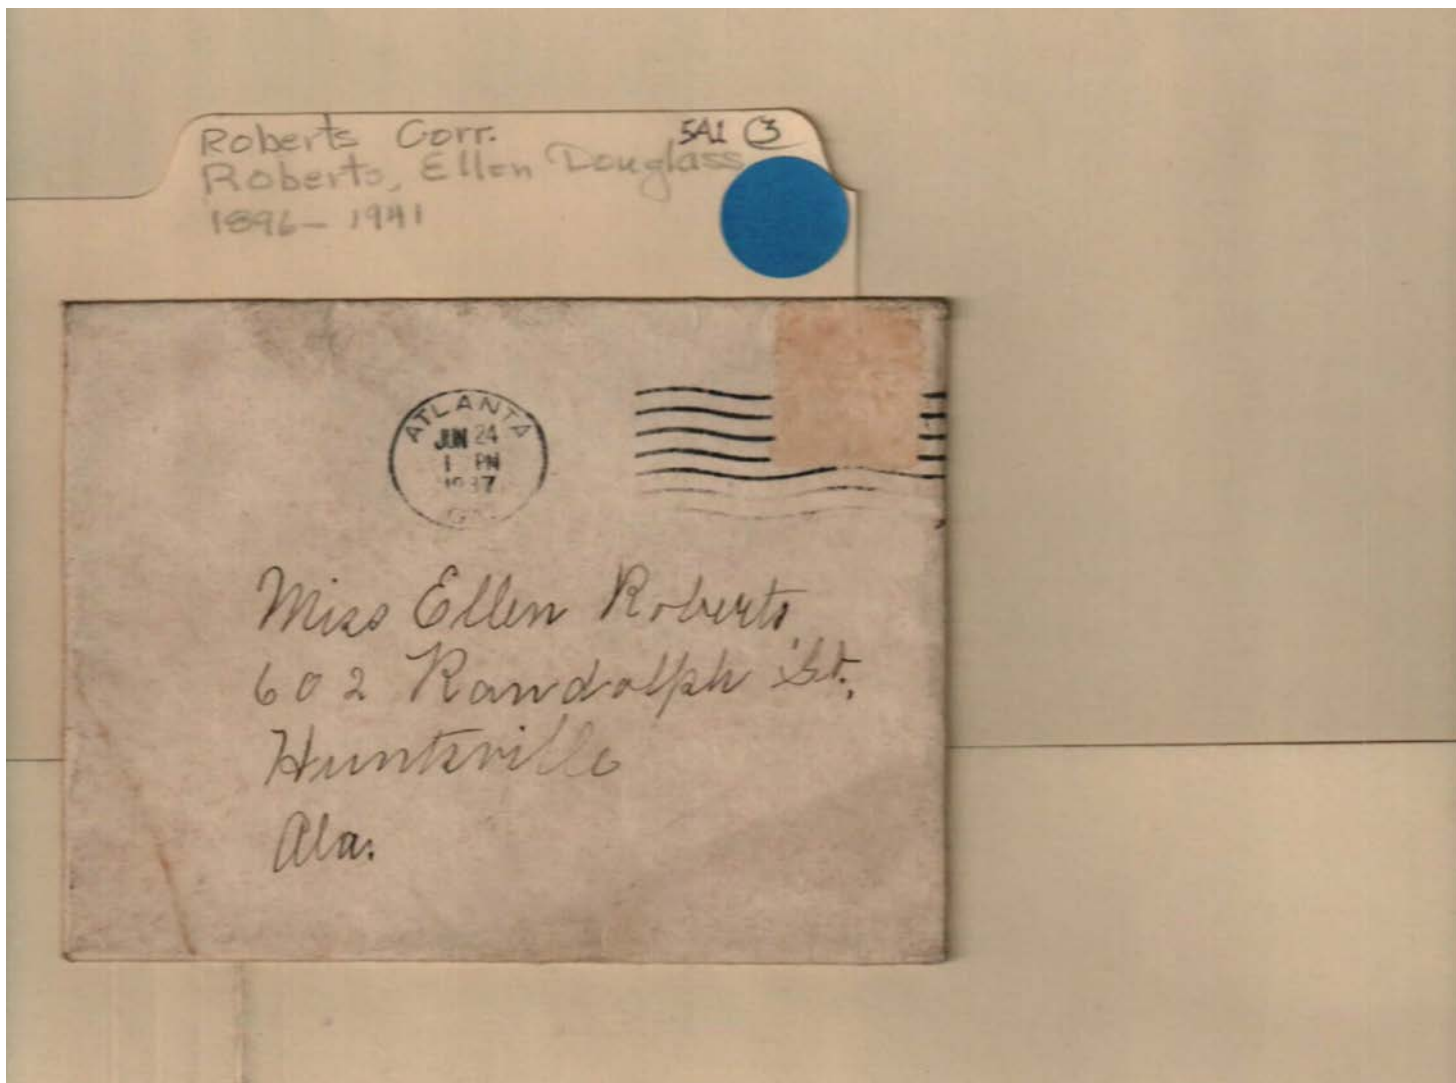 Roberts Corr. 5A1 3
Roberts, Ellen Douglass
1896-1941
ATLANTA
JUN 24
1 PM
1937
GA.
Miss Ellen Roberts
602 Randolph St.
Huntsville
Ala.